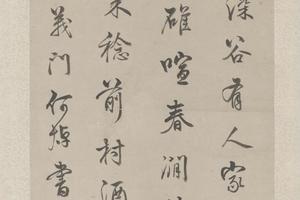 深谷有人家
碓喧春澗
稔前村酒
義門何焯書